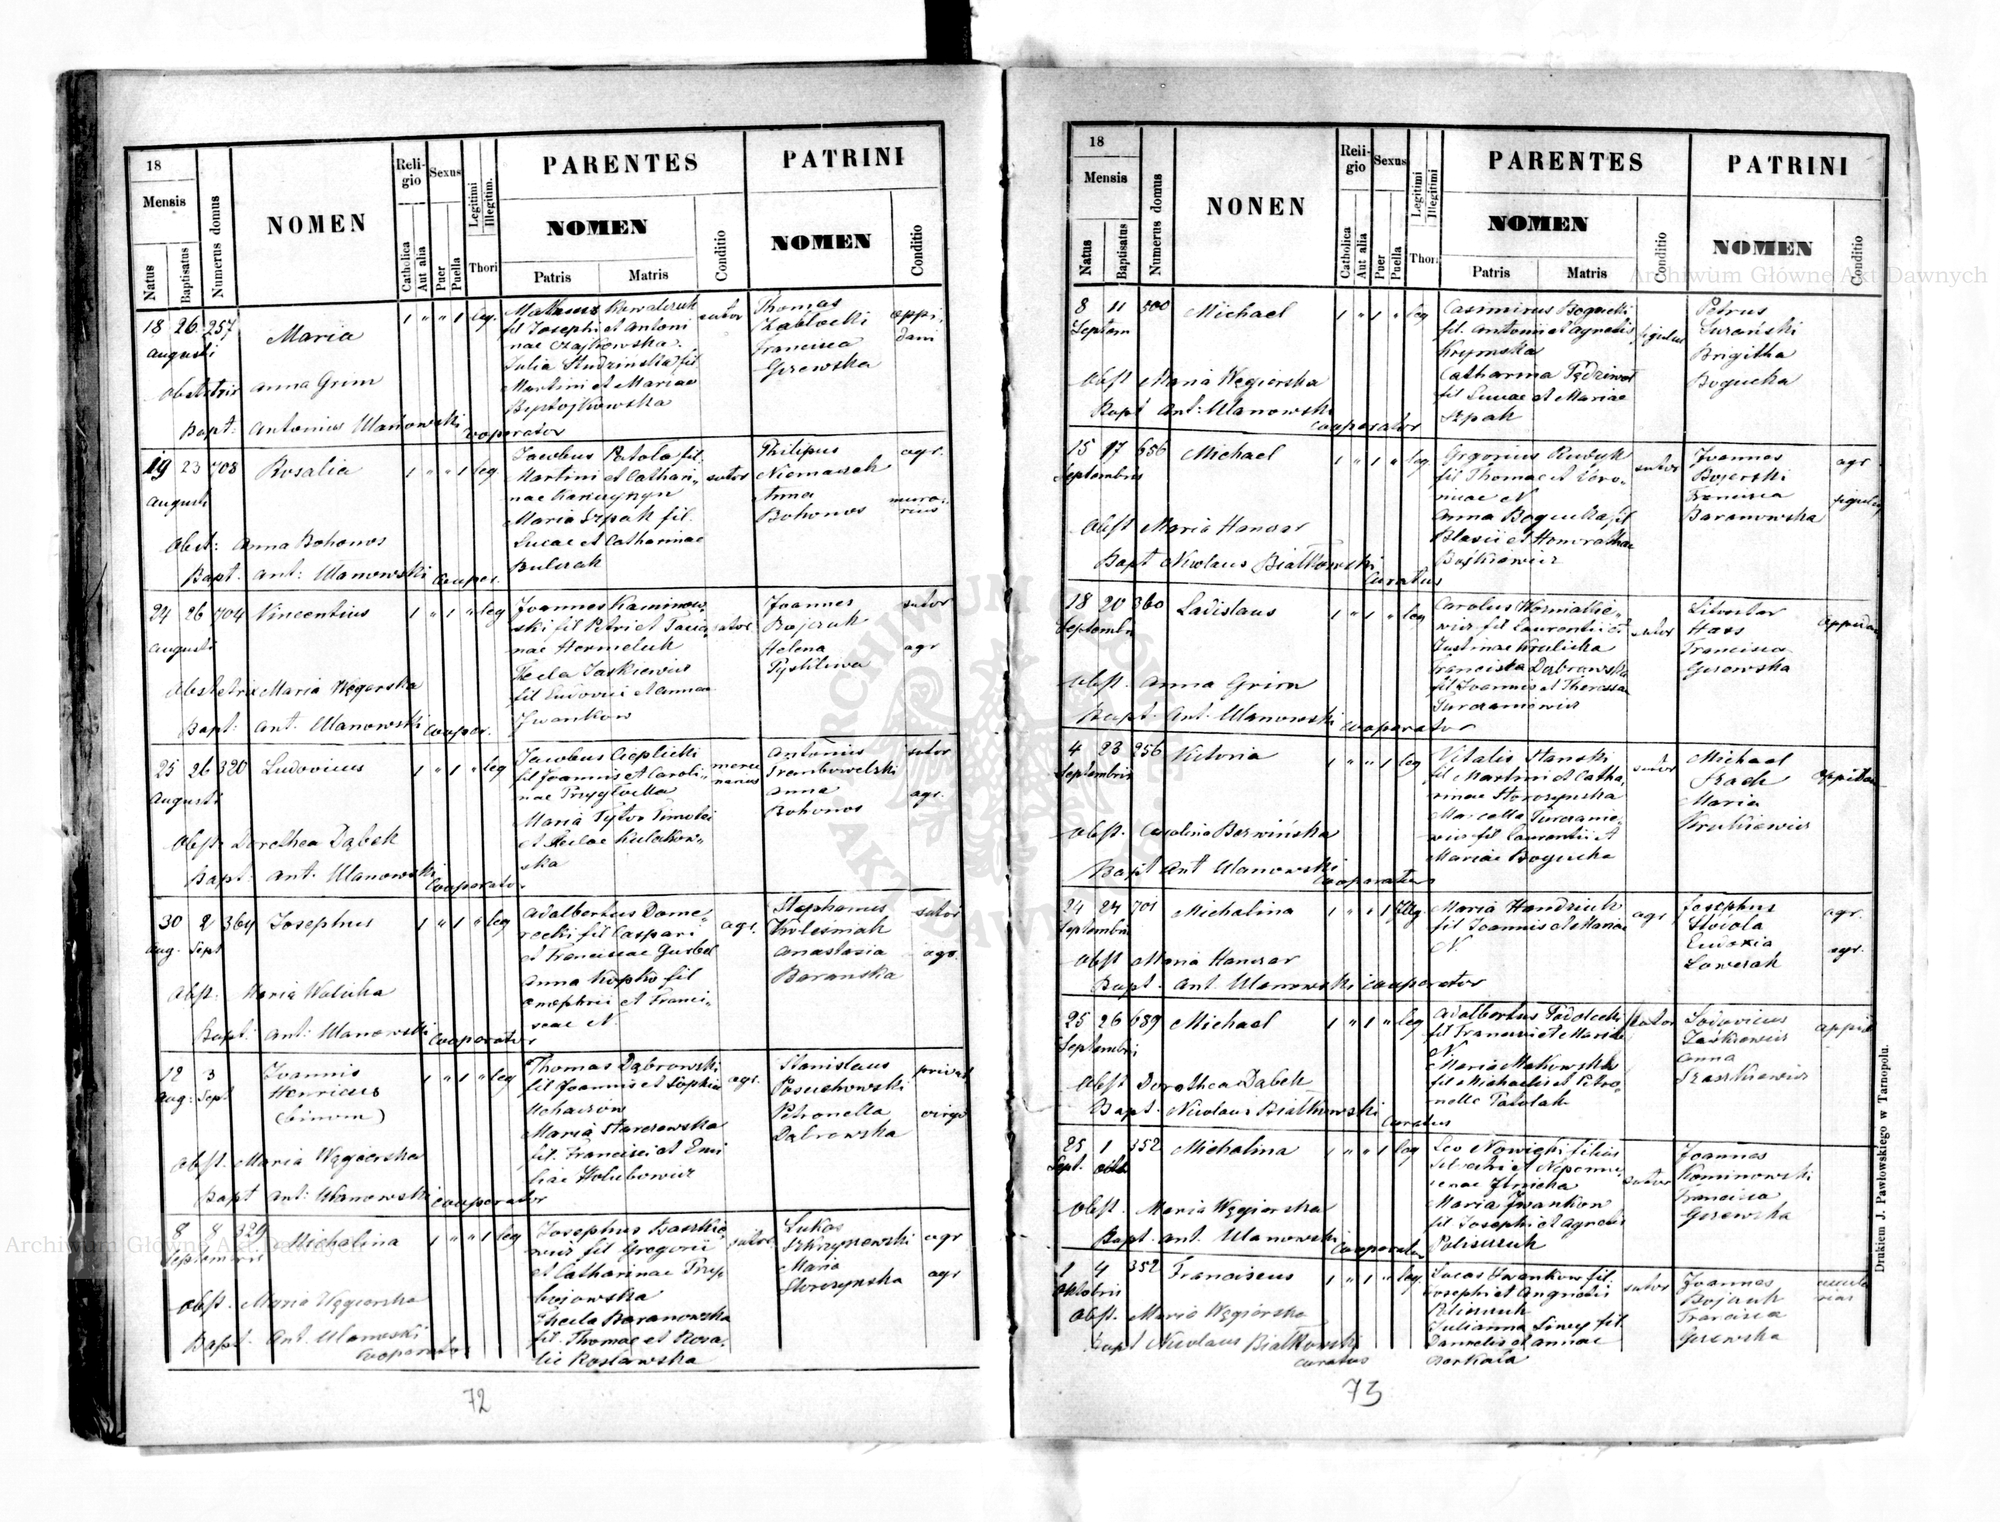 18
Mensis
Natus
Baptisatus
Numerus domus
NOMEN
Religio
Catholica
Aut alia
Sexus
Puer
Puella
Legitimi
Illegitim.
Thori
PARENTES
NOMEN
Patris
Matris
Conditio
PATRINI
NOMEN
Conditio
18 26 257 Maria 1 " " 1 leg.
Augusti
fil Josephi et Antoni
nae Czajkowska
Julia Studzińska fil
Martini et Mariae
sutor
Thomas
Zabłocki
Francisca
Gerewska
oppi
dani
Obstetrix Anna Grim
Bapt: Antonius Ulanowski cooperator
19 23 708 Rosalia 1 " " 1 leg.
Augusti
Jacobus Patola fil.
Martini et Cathari-
nae
Maria Szpak fil.
Lucae et Catharinae
Bulczak
sutor
Philipus
Niemaszek
Anna
Bohonos
agr.
mura-
rius
Obst: Anna Bohonos
Bapt. Ant: Ulanowski cooper.
24 26 704 Vincentius 1 " 1 " leg
Augusti
Joannes Kaminow-
ski fil Petri et
nae Hermeluk
Tecla Jaskiewicz
fil Ludovici et Annae
Iwankow
sutor
Joannes
Bojczuk
Helena
sutor
agr
Obstetrix Maria Węgierska
Bapt: Ant. Ulanowski cooper.
25 26 320 Ludovicus 1 " 1 " leg
Augusti
Jacobus Cieplicki
fil Joannis et Caroli-
nae
Maria Tytor Timotei
et Teclae
ska
merce
narius
Antonius
Trembowelski
Anna
Bohonos
sutor
agr.
Obst. Dorothea Dąbek
Bapt. Ant. Ulanowski cooperator
30 2 364 Josephus 1 " 1 " leg
Aug. Sept
Adalbertus Dome-
recki fil Caspari
et Franciscae
Anna Kopko fil
Onophrii et Franci-
scae N.
agr.
Stephanus
Kolesniak
Anastasia
Baranska
sutor
agr.
Obst. Maria Walicka
Bapt: Ant: Ulanowski cooperator
12 3 Joannis 1 " 1 " leg
Aug: Sept Henricus
(binom)
Thomas Dąbrowski
fil Joannis et Sophiae
Maria Starczewska
fil. Francisci et Emi
liae Holubowicz
agr.
Stanislaus
Posuchowski
Petronella
Dąbrowska
privat
virgo
Obst. Maria Węgierska
Bapt Ant: Ulanowski cooperator
8 8 329 Michalina 1 " " 1 leg
Septembris
Josephus Baszkie-
wicz fil Gregorii
et Catharinae
Thecla Baranowska
fil. Thomae et Rosa-
lie Rosławska
sutor
Lukas
Maria
agr
agr
Obst. Maria Węgierska
Bapt. Ant. Ulanowski
cooperator
72
18
Mensis
Natus
Baptisatus
Numerus domus
NONEN
Religio
Catholica
Aut alia
Sexus
Puer
Puella
Legitimi
Illegitimi
Thori
PARENTES
NOMEN
Patris
Matris
Conditio
PATRINI
NOMEN
Conditio
8 11 500 Michael 1 " 1 " leg
Septem
Casimirus Bogucki
fil. Antonii et Agnetis
Krymska
Catharina
fil Lucae et Mariae
Szpak
figulus
Petrus
Brigitha
Bogucka
Obst Maria Węgierska
Bapt Ant: Ulanowski cooperator
15 17 656 Michael 1 " 1 " leg.
Septembris
fil Thomae et Vero-
nicae N
Anna Bogucka fil
Blasii et Honorathae
Boskiewicz
sutor
Joannes
Bojerski
Francisca
Baranowska
agr
figulus
Obst Maria Hanczar
Bapt Nicolaus Białkowski curatus
18 20 360 Ladislaus 1 " 1 " leg
Septembr
Carolus
wicz fil Laurentii et
Justinae Krulicka
Francisca Dąbrowska
fil Joannis et Theressa
Turczaniewicz
sutor
Silvester
Hass
Francisca
Gerewska
oppidan
Obst. Anna Grim
Bapt. Ant. Ulanowski cooperator
4 23 256 Victoria 1 " " 1 leg
Septembris
Vitalis
fil Martini et Catha
rinae Storozynska
Marcella
wicz fil Laurentii et
Mariae Bogucka
sutor
Michael
Maria
Krukiewicz
oppidan
Obst. Carolina Barwińska
Bapt Ant Ulanowski cooperator
24 27 701 Michalina 1 " " 1 Illeg.
Septembris
Maria Handziuk
fil Joannis et Mariae
N.
agr
Josephus
Eudoxia
Lawczak
agr.
agr.
Obst Maria Hanczar
Bapt. Ant Ulanowski cooperator
25 26 689 Michael 1 " 1 " leg
Septembri
Adalbertus Podolecki
fil Francisci et Mariae
N.
Maria Makowska
fil Michaelis et Petro-
nelle Patolak
sutor
Lodovicus
Jaśkiewicz
Anna
oppid
Obst Dorothea Dąbek
Bapt. Nicolaus Białkowski curatus
25 1 352 Michalina 1 " " 1 leg
Sept. Octb
Leo Nowicki filius
Silvestri et Nepomu-
cenae Ilnicka
Maria Iwankow
fil Josephi et Agnetis
Poliszczuk
sutor
Joannes
Kaminowski
Francisca
Gerewska
Obst. Maria Węgierska
Bapt. Ant. Ulanowski cooperator
1 4 352 Franciscus 1 " 1 " leg.
Oktobris
Lucas Iwankow fil.
Josephi et Angnetis
Poliszczuk
Julianna
Danielis et Annae
sutor
Joannes
Bojczuk
Francisca
Gerewska
Obst. Maria Węgierska
Bapt Nicolaus Białkowski
curatus
73
Drukiem J. Pawłowskiego w Tarnopolu.
Archiwum Główne Akt Dawnych
Archiwum Główne Akt Dawnych
ARCHIWUM GŁÓWNE AKT DAWNYCH